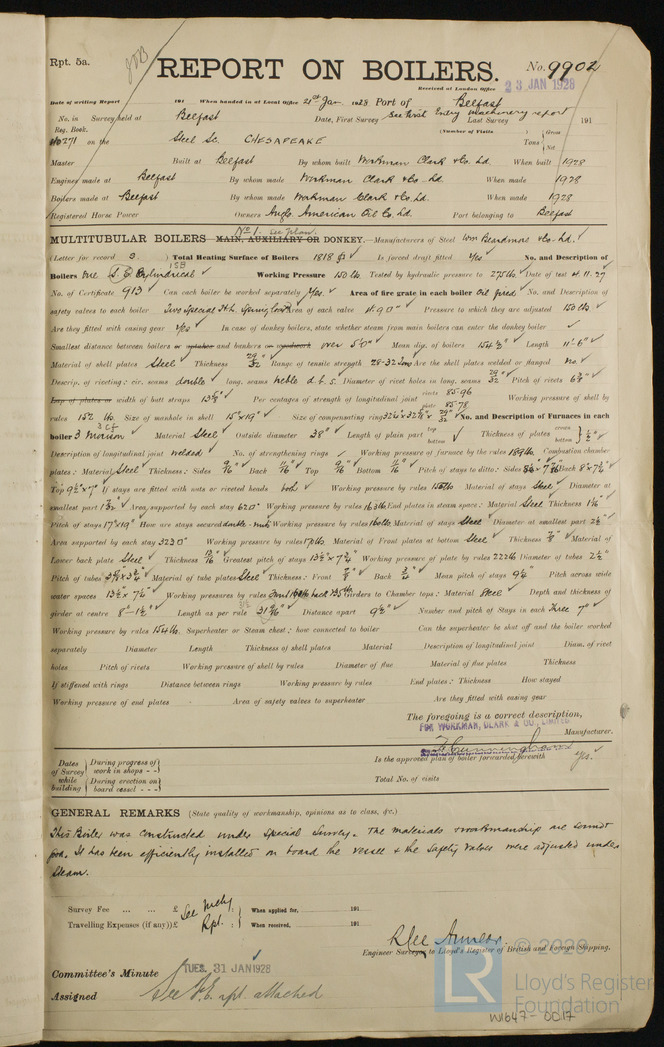 Rpt. 5a.
REPORT ON BOILERS.
No. 9902
Received at London Office 23 JAN 1928
Date of writing Report 191 When handed in at Local Office 21st Jan 1928 Port of Belfast
No. in Survey held at Belfast Date, First Survey See First Entry Machinery report Last Survey 191
Reg. Book. (Number of Visits
on the Steel Sc. CHESAPEAKE Tons { Gross
Net
Master Built at Belfast By whom built Workman Clark & Co. Ld. When built 1928
Engines made at Belfast By whom made Workman Clark & Co. Ld. When made 1928
Boilers made at Belfast By whom made Workman Clark & Co. Ld. When made 1928
Registered Horse Power Owners Anglo American Oil Co. Ld. Port belonging to Belfast
No 1. See plan.
MULTITUBULAR BOILERS MAIN, AUXILIARY OR DONKEY. Manufacturers of Steel Wm Beardmore & Co. Ld.
(Letter for record S.) Total Heating Surface of Boilers 1818 Is forced draft fitted Yes No. and Description of
Boilers One S. E. Cylindrical Working Pressure 150 lbs. Tested by hydraulic pressure to 275 lbs Date of test 4.11.27
No. of Certificate 913 Can each boiler be worked separately Yes. Area of fire grate in each boiler Oil fired No. and Description of
safety valves to each boiler Two Special Spring loaded Area of each valve Pressure to which they are adjusted 150 lbs
Are they fitted with easing gear Yes In case of donkey boilers, state whether steam from main boilers can enter the donkey boiler
Smallest distance between boilers or uptakes and bunkers or woodwork over 5'0" Mean dia. of boilers Length 11'-6"
Material of shell plates Steel Thickness 29/32 Range of tensile strength 28-32 Tons Are the shell plates welded or flanged No
Descrip. of riveting: cir. seams double long. seams treble d.b.s. Diameter of rivet holes in long. seams 29/32 Pitch of rivets
Lap of plates or width of butt straps Per centages of strength of longitudinal joint rivets 85.96 plate 85.78 Working pressure of shell by
rules 152 lbs. Size of manhole in shell 15"x19" Size of compensating ring No. and Description of Furnaces in each
boiler 3 Morison Material Steel Outside diameter 38" Length of plain part top bottom Thickness of plates crown bottom } 1/2"
Description of longitudinal joint welded No. of strengthening rings Working pressure of furnace by the rules 189 lbs Combustion chamber
plates: Material Steel Thickness: Sides Back Top Bottom Pitch of stays to ditto: Sides Back
Top 9 1/2"x7" If stays are fitted with nuts or riveted heads both Working pressure by rules Material of stays Steel Diameter at
smallest part Area supported by each stay Working pressure by rules 163 lbs End plates in steam space: Material Steel Thickness
Pitch of stays 17"x19" How are stays secured double nuts Working pressure by rules Material of stays Steel Diameter at smallest part
Area supported by each stay Working pressure by rules Material of Front plates at bottom Steel Thickness Material of
Lower back plate Steel Thickness Greatest pitch of stays Working pressure of plate by rules 222 lbs Diameter of tubes 2 1/2"
Pitch of tubes Material of tube plates Steel Thickness: Front Back 3/4 Mean pitch of stays 9 1/4" Pitch across wide
water spaces Working pressures by rules Girders to Chamber tops: Material Steel Depth and thickness of
girder at centre Length as per rule Distance apart 9 1/2" Number and pitch of Stays in each Three 7"
Working pressure by rules 154 lbs. Superheater or Steam chest; how connected to boiler Can the superheater be shut off and the boiler worked
separately Diameter Length Thickness of shell plates Material Description of longitudinal joint Diam. of rivet
holes Pitch of rivets Working pressure of shell by rules Diameter of flue Material of flue plates Thickness
If stiffened with rings Distance between rings Working pressure by rules End plates: Thickness How stayed
Working pressure of end plates Area of safety valves to superheater Are they fitted with easing gear
The foregoing is a correct description,
FOR WORKMAN, CLARK & CO., LIMITED
Manufacturer.
Dates of Survey while building { During progress of work in shops - - Is the approved plan of boiler forwarded herewith Yes.
During erection on board vessel - - - Total No. of visits
GENERAL REMARKS (State quality of workmanship, opinions as to class, &c.)
This Boiler was constructed under Special Survey. The materials & workmanship are sound &
good. It has been efficiently installed on board the vessel & the Safety Valves were adjusted under
Steam.
Survey Fee ... ... £ See Mchy When applied for, 191
Travelling Expenses (if any) £ Rpt. When received, 191
Engineer Surveyor to Lloyd's Register of British and Foreign Shipping.
Committee's Minute TUES. 31 JAN 1928
Assigned See F.E. rpt. attached
LR © 2020
Lloyd's Register
Foundation
W1647-0017